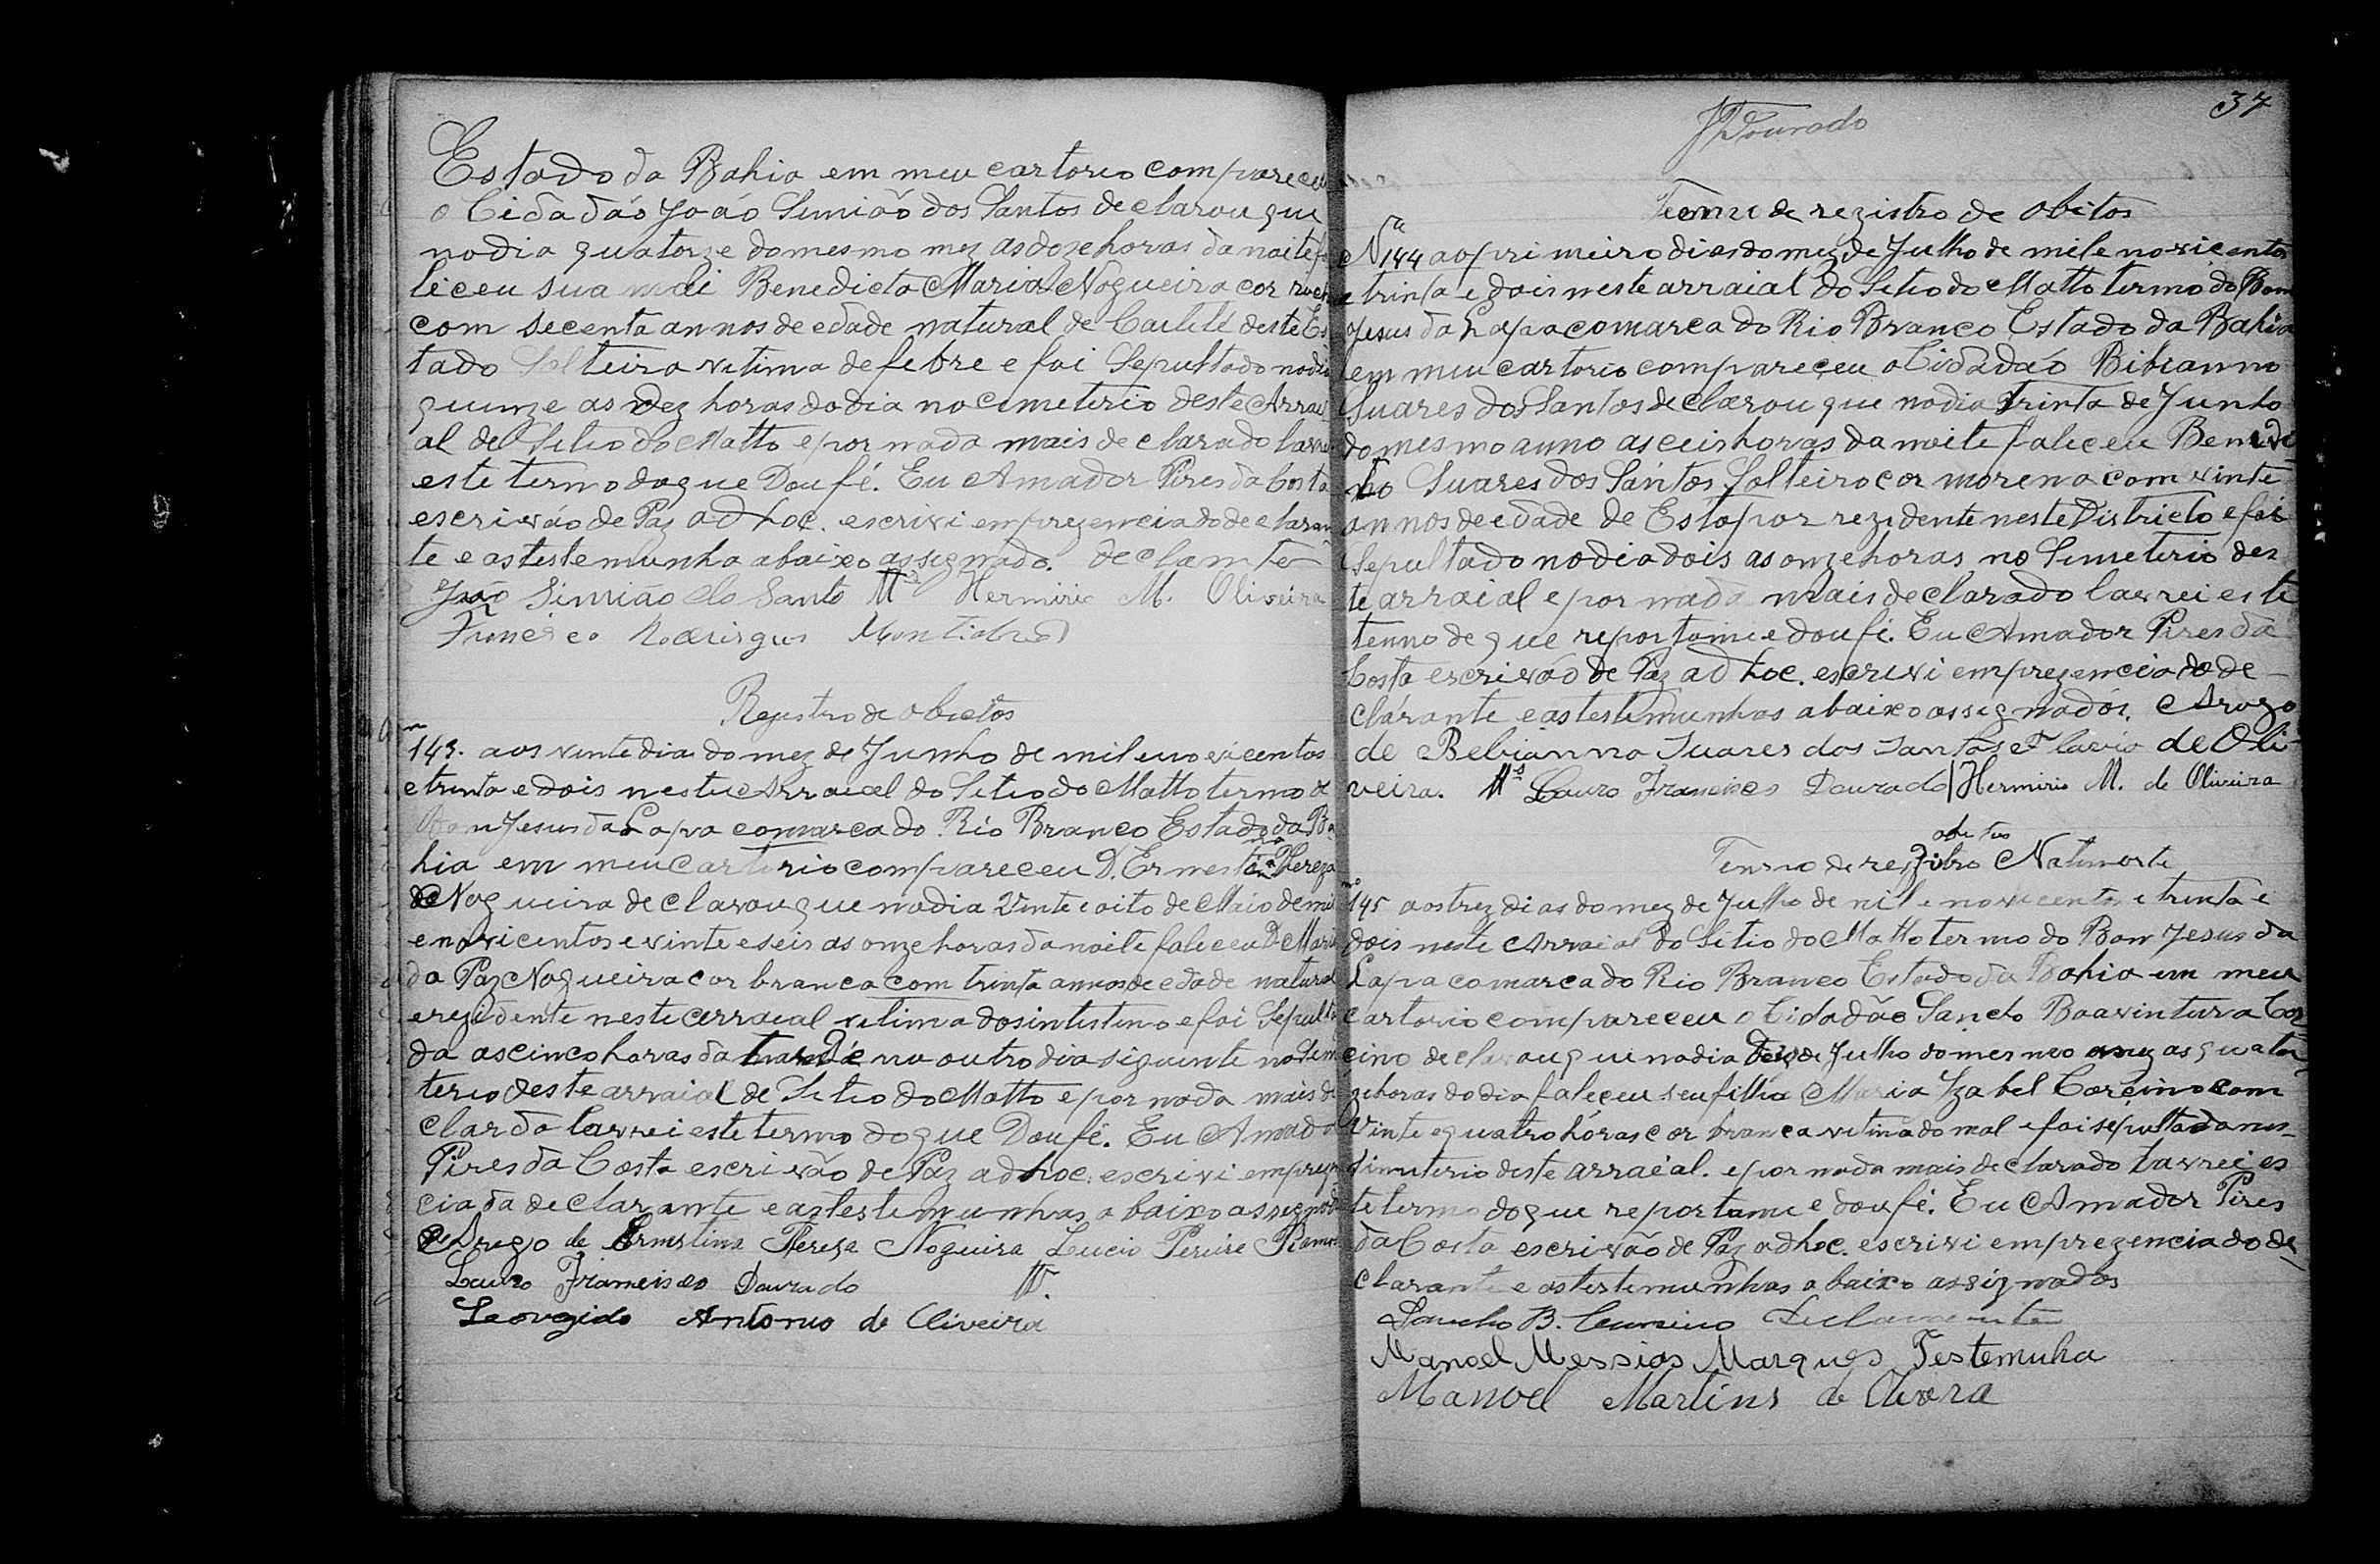 Estado da Bahia em meu cartorio compareceu
o Cidadão João Simião dos Santos declarou que
no dia quatorze do mesmo mez as doze horas da noite fa
leceu sua mãi Benedicta Maria Nogueira cor
com secenta annos de edade natural de deste Es
tado Solteira vitima de febre e foi Sepultado no dia
quinze as dez horas do dia no cimeterio deste Arrai
al de Sitio do Matto e por nada mais declarado lavrei
este termo do que Dou fé. Eu Amador Pires da Costa
escrivão de Paz ad hoc. escrivi em prezencia do declaran
te e as testemunha abaixo assignado. declamte
João Simião do Santo Hermirio M. Oliveira
Rodrigues
Registro de obietos
143. aos vinte dia do mez de Junho de mil e novicentos
e trinta e dois neste Arraial do Sitio do Matto termo de
Bom Jesus da Lapa comarca do Rio Branco Estado da Ba
hia em meu cartorio compareceu D. Ernestina Thereza
de Nogueira declarou que no dia Vinte e oito de Maio de mil
e novicentos e vinte e seis as onze horas da noite faleceu D. Maria
da Paz Nogueira cor branca com trinta annos de edade natural
e rezidente neste arraial vitima dos intistino e foi Sepulta
da as cinco horas da tarde no outro dia siguinte no Sem
terio deste arraial de Sitio do Matto e por nada mais de
clardo lavrei este termo do que Dou fé. Eu Amador
Pires da Costa escrivão de Paz ad hoc. escrivi em prezen
cia da declarante e as testemunhas abaixo assignado
Arugo de Ernestina Thereza Nogueira Lucio Pereira Ramos
Lauro Francisco Dourado
Leovegido Antonio de Oliveira
37
JDourado
Termo de registro de obitos
N 144 ao primeiro dias do mez de Julho de mil e novicentos
e trinta e dois neste arraial do Sitio do Matto termo do Bom
Jesus da Lapa comarca do Rio Branco Estado da Bahia
em meu cartorio compareceu o Cidadão Bibianno
Suares dos Santos declarou que no dia trinta de Junho
do mesmo anno as ceis horas da noite faleceu Benidi
to Suares dos Santos Solteiro cor morena com vinte
annos de edade de Estopor rezidente neste Districto e foi
Sepultado no dia dois as onze horas no Simeterio des
te arraial e por nada mais declarado lavrei este
termo de que reportome e dou fé. Eu Amador Pires da
Costa escrivão de Paz ad hoc. escrivi em prezencia do de
clarante e as testemunhas abaixo assignados. Arugo
de Bebianno Suares dos Santos Flavio de Oli-
veira. Lauro Francisco Dourado / Hermirio M. de Oliveira
obitos
Termo de registro Natimorte
145 aos trez dias do mez de Julho de mil e novicentos e trinta e
dois neste Arraial do Sitio do Matto termo do Bom Jesus da
Lapa comarca do Rio Branco Estado da Bahia em meu
cartorio compareceu o Cidadão Sancho Boaventura Cor
cino declarou que no dia de Julho do mesmo as quator
ze horas do dia faleceu seu filha Maria Izabel Corcino com
Vinte e quatro hóras cor branca vitima do mal e foi sepultada nes
Simiterio deste arraial. e por nada mais declarado lavrei es
te termo do que reportome e dou fé. Eu Amador Pires
da Costa escrivão de Paz ad hoc. escrivi em prezencia do de
clarante e as testemunhas abaixo assignados
Sancho B. Declarante
Manoel Messias Marques Testemuha
Manoel Martins de